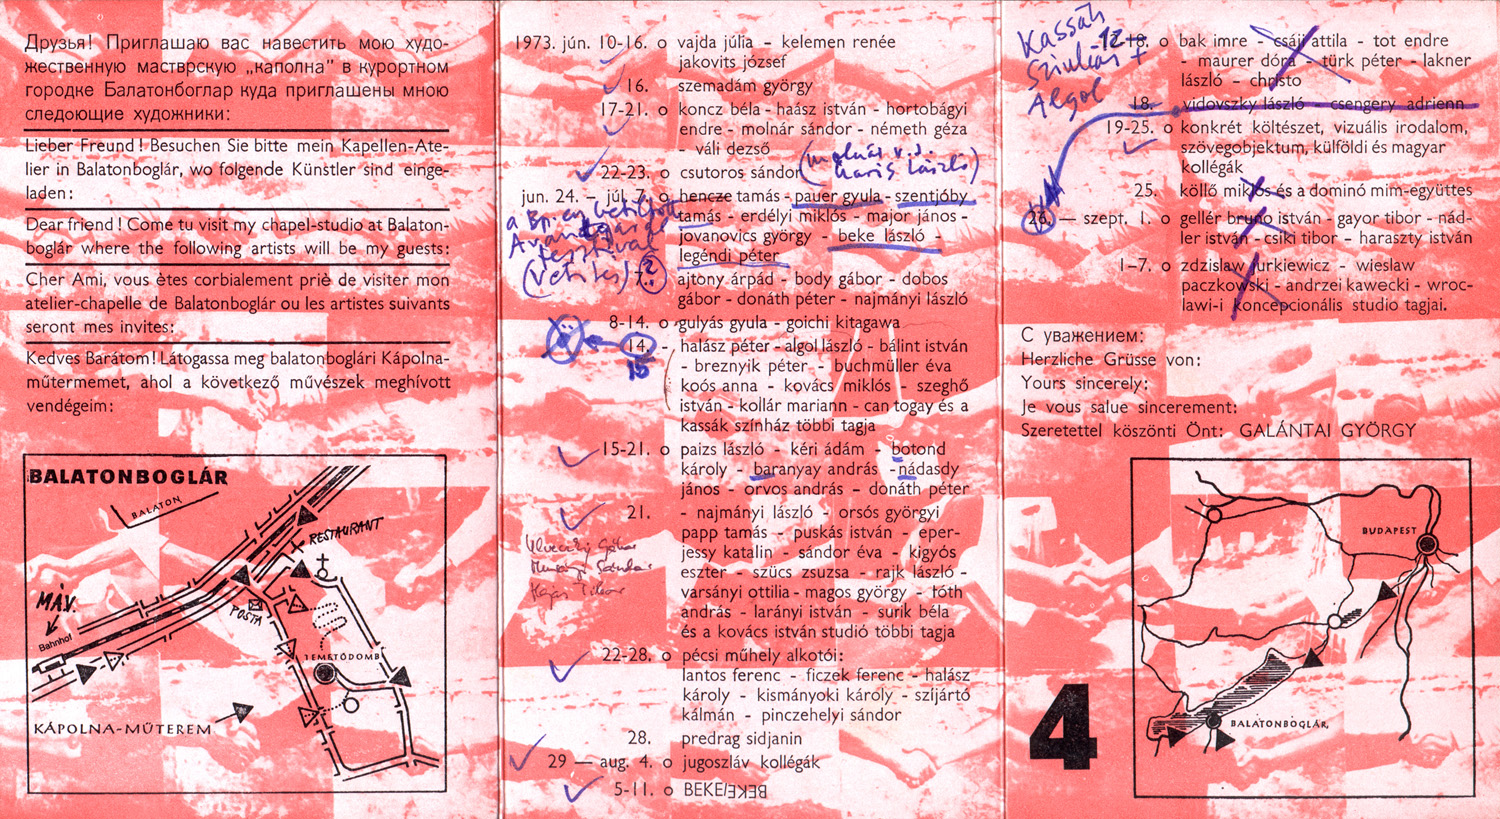 Друзья! Приглашаю вас навестить мою худо-
жественную мастврскую „каполна" в курортном
городке Балатонбоглар куда приглашены мною
следоющие художники:
Lieber Freund! Besuchen Sie bitte mein Kapellen-Ate-
lier in Balatonboglár, wo folgende Künstler sind einge-
laden:
Dear friend! Come tu visit my chapel-studio at Balaton-
boglár where the following artists will be my guests:
Cher Ami, vous ètes corbialement priè de visiter mon
atelier-chapelle de Balatonboglár ou les artistes suivants
seront mes invites:
Kedves Barátom! Látogassa meg balatonboglári Kápolna-
műtermemet, ahol a következő művészek meghívott
vendégeim:
BALATONBOGLÁR
BALATON
RESTAURANT
MÁV.
Bahnhof
POSTA
TEMETŐDOMB
KÁPOLNA-MŰTEREM
1973. jún. 10-16. o vajda júlia - kelemen renée
jakovits józsef
16. szemadám györgy
17-21. o koncz béla - haász istván - hortobágyi
endre - molnár sándor - németh géza
- váli dezső
22-23. o csutoros sándor (molnár v. j.
haris lászló)
jun. 24. — júl. 7. o hencze tamás - pauer gyula - szentjóby
tamás - erdélyi miklós - major jános -
jovanovics györgy - beke lászló -
legéndi péter
a
Avantgard
fesztivál
(vetítés)
7. ?
ajtony árpád - body gábor - dobos
gábor - donáth péter - najmányi lászló
8-14. o gulyás gyula - goichi kitagawa
14. - halász péter - algol lászló - bálint istván
15
- breznyik péter - buchmüller éva
koós anna - kovács miklós - szeghő
istván - kollár mariann - can togay és a
kassák színház többi tagja
15-21. o paizs lászló - kéri ádám - botond
károly - baranyay andrás - nádasdy
jános - orvos andrás - donáth péter
21. - najmányi lászló - orsós györgyi
papp tamás - puskás istván - eper-
jessy katalin - sándor éva - kigyós
eszter - szücs zsuzsa - rajk lászló -
varsányi ottilia - magos györgy - tóth
andrás - larányi istván - surik béla
és a kovács istván studió többi tagja
22-28. o pécsi műhely alkotói:
lantos ferenc - ficzek ferenc - halász
károly - kismányoki károly - szíjártó
kálmán - pinczehelyi sándor
28. predrag sidjanin
29 — aug. 4. o jugoszláv kollégák
5-11. o BEKE/BEKE
Kassák
Szinház +
Algol
12-18. o bak imre - csáji attila - tot endre
- maurer dóra - türk péter - lakner
lászló - christo
18. - vidovszky lászló - csengery adrienn
19-25. o konkrét költészet, vizuális irodalom,
szövegobjektum, külföldi és magyar
kollégák
25. köllő miklós és a dominó mim-együttes
26. — szept. 1. o gellér bruno istván - gayor tibor - nád-
ler istván - csiki tibor - haraszty istván
1-7. o zdzislaw jurkiewicz - wieslaw
paczkowski - andrzei kawecki - wroc-
lawi-i koncepcionális studio tagjai.
С уважением:
Herzliche Grüsse von:
Yours sincerely:
Je vous salue sincerement:
Szeretettel köszönti Önt: GALÁNTAI GYÖRGY
4
BUDAPEST
BALATONBOGLÁR